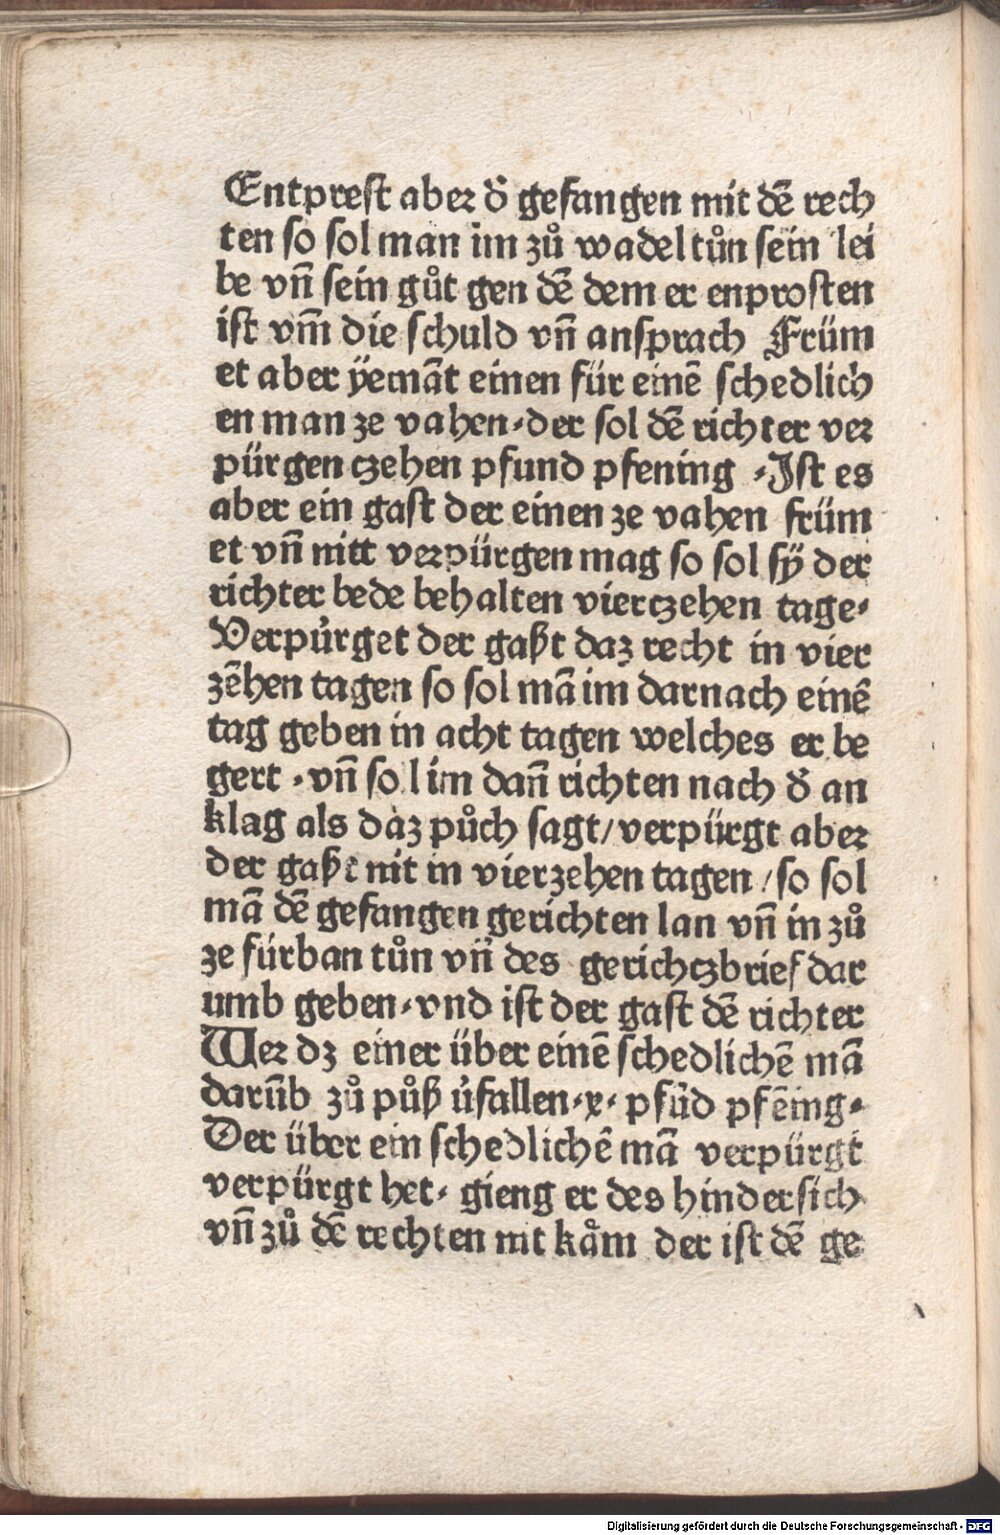 Entprest aber d̕ gefangen mit dē rech
ten so sol man im zů wadel tůn sein lei
be vñ sein gůt gen dē dem er enprosten
ist vm̄ die schuld vñ ansprach Früm
et aber ÿemāt einen für einē schedlich
en man ze vahen der sol dē richter ver
pürgen czehen pfund pfening Ist es
aber ein gast der einen ze vahen früm
et vñ nitt verpürgen mag so sol sÿ der
richter bede behalten vierczehen tage
Verpürget der gaßt daz recht in vier
zēhen tagen so sol mā im darnach einē
tag geben in acht tagen welches er be
gert vñ sol im dañ richten nach d̕ an
klag als daz půch sagt/ verpürgt aber
der gaßt nit in vierzehen tagen / so sol
mā dē gefangen gerichten lan vñ in zů
ze fürban tůn vñ des gerichczbrief dar
umb geben vnd ist der gast dē richter
Wer dz einer über einē schedlichē mā
darūb zů půß v̕fallen x pfūd pfēing
Der über ein schedlichē mā verpürgt
verpürgt het gieng er des hindersich
vñ zů dē rechten nit kåm der ist dē ge
Digitalisierung gefördert durch die Deutsche Forschungsgemeinschaft - DFG